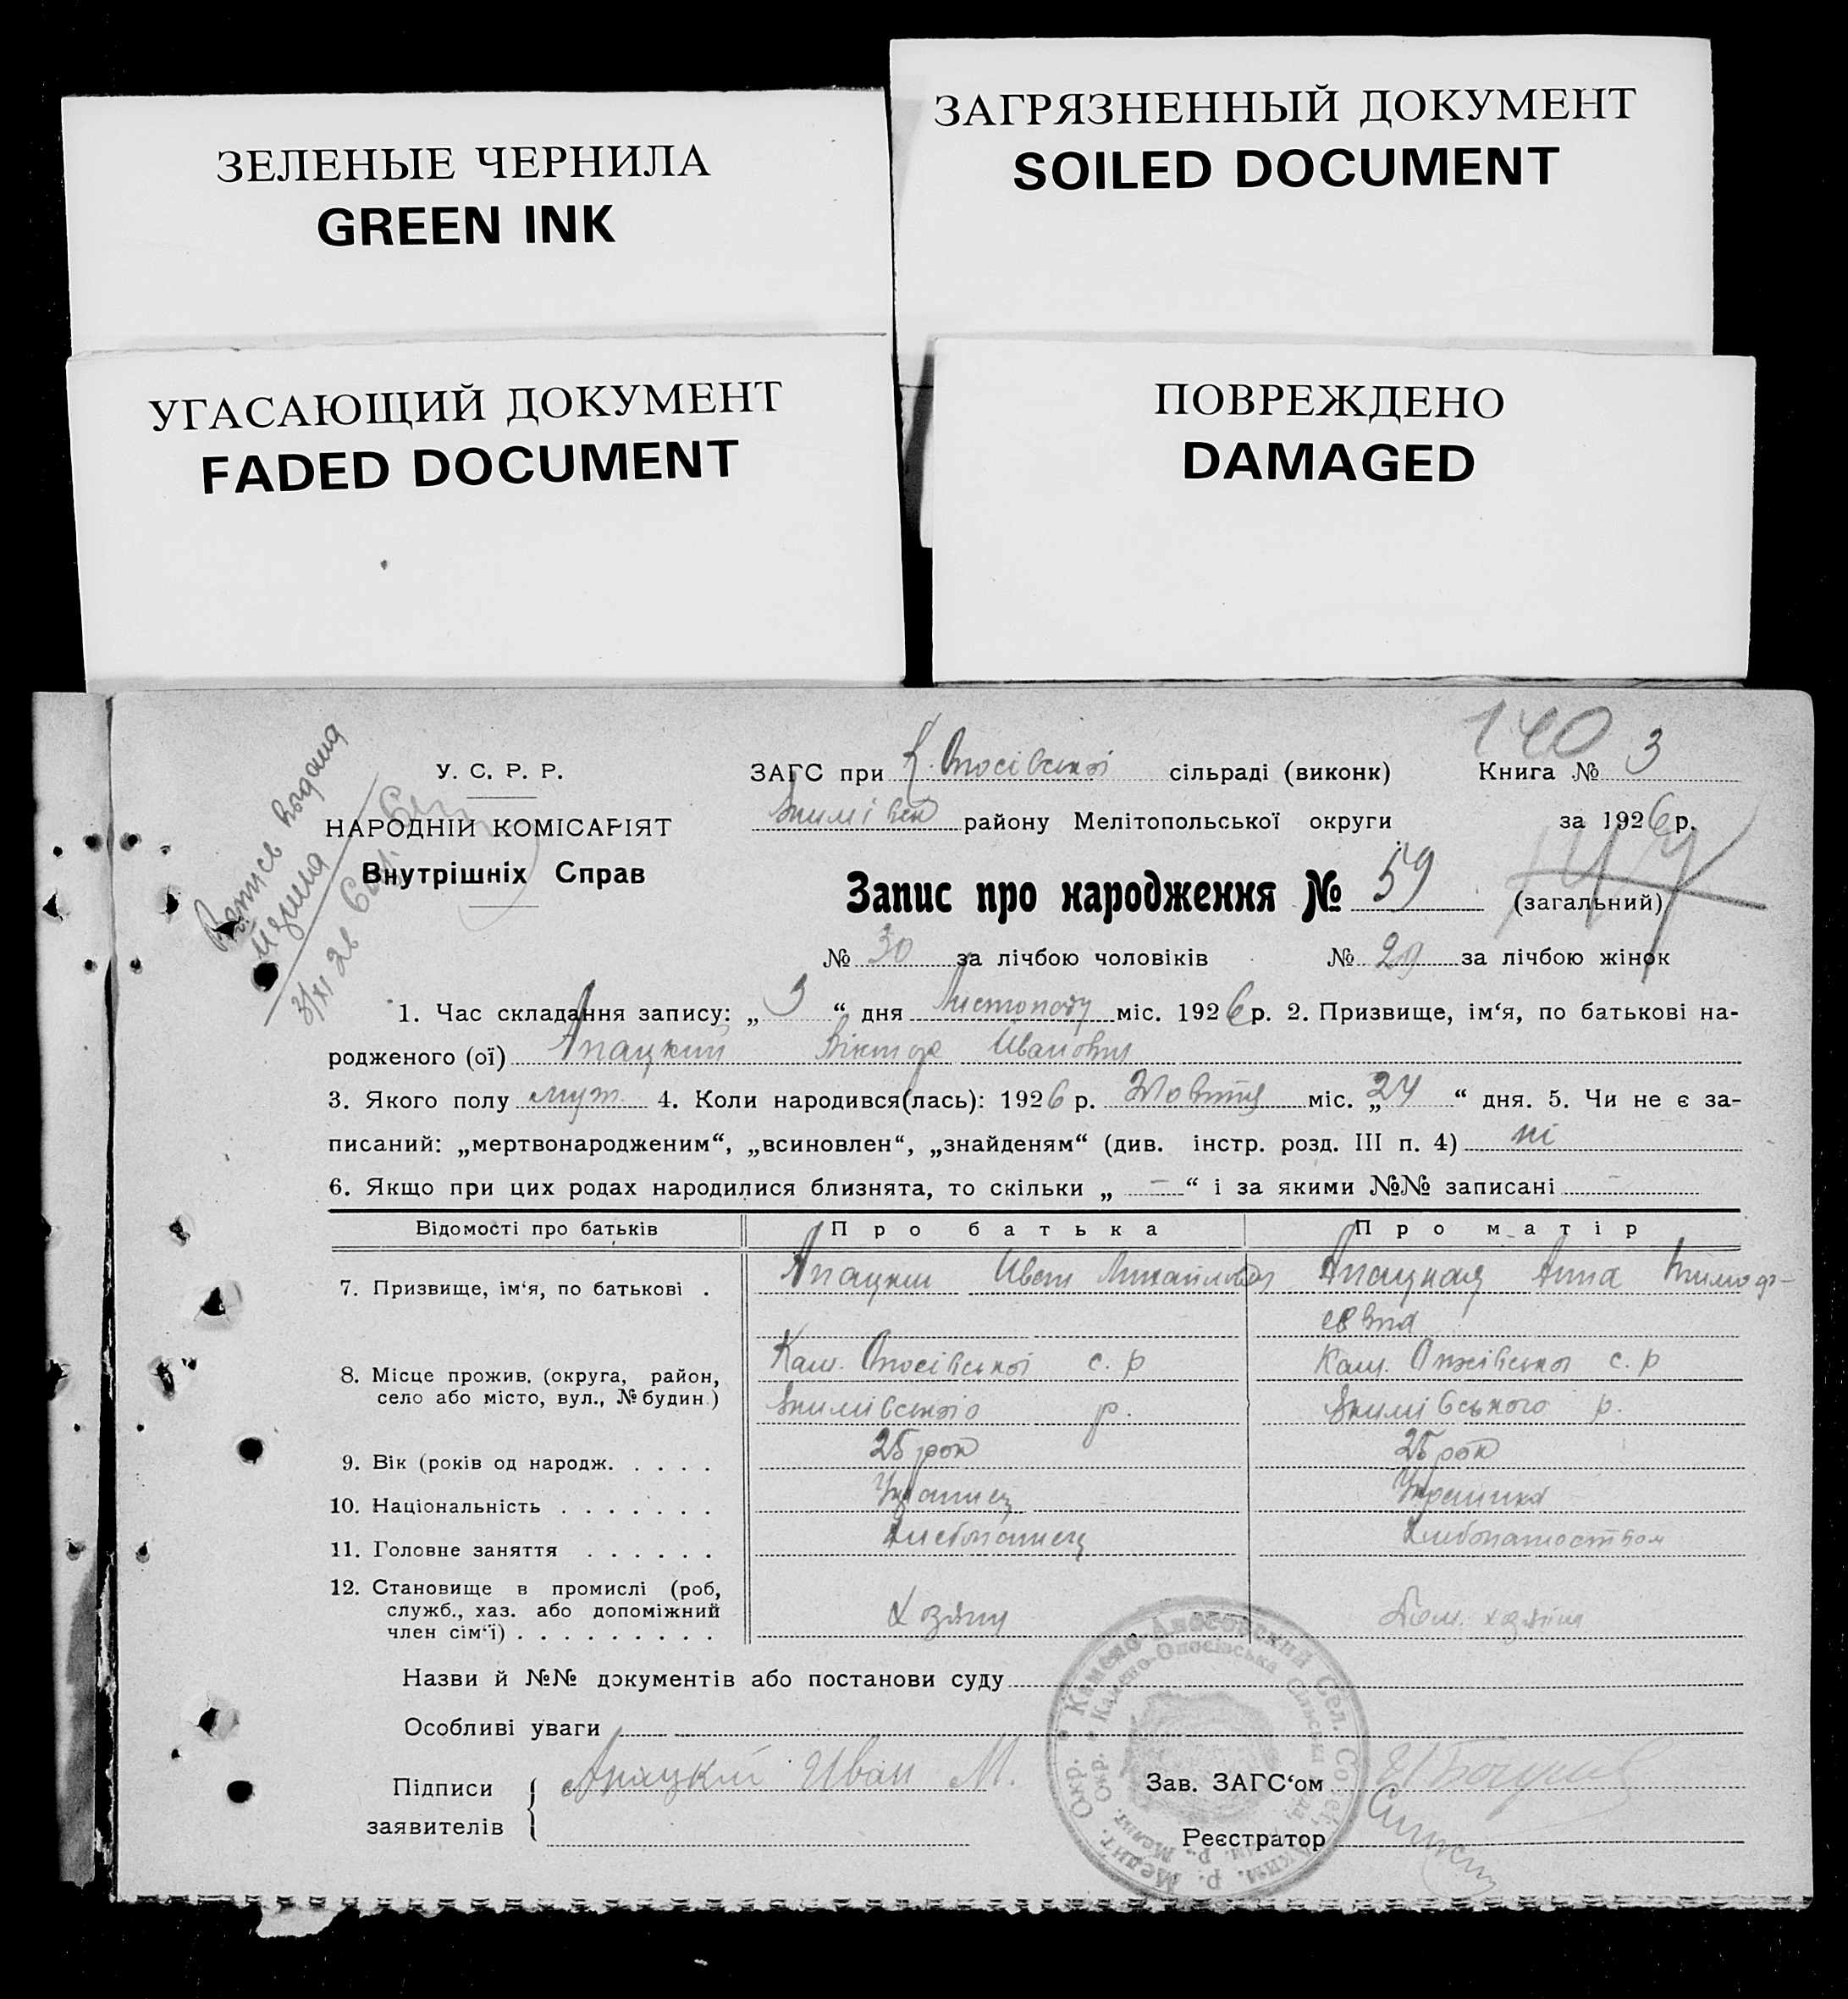 ЗАГРЯЗНЕННЫЙ ДОКУМЕНТ
SOILED DOCUMENT
ЗЕЛЕНЫЕ ЧЕРНИЛА
GREEN INK
УГАСАЮЩИЙ ДОКУМЕНТ
FADED DOCUMENT
ПОВРЕЖДЕНО
DAMAGED
140
У. С. Р. Р.
НАРОДНІЙ КОМІСАРІЯТ
Внутрішніх Справ
ЗАГС при К. Опосівської сільраді (виконк) Книга № 3
району Мелітопольської округи за 1926 р.
Запис про народження № 59 (загальний)
№ 30 за лічбою чоловіків № 29 за лічбою жінок
1. Час складання запису: „ 3 “ дня Листопаду міс. 1926 р. 2. Призвище, ім‘я, по батькові на-
родженого (ої) Апацкий Віктор Иванович
3. Якого полу муж. 4. Коли народився(лась): 1926 р. Жовтня міс. „ 24 “ дня. 5. Чи не є за-
писаний: „мертвонародженим“, „всиновлен“, „знайденям“ (див. інстр. розд. III п. 4) ні
6. Якщо при цих родах народилися близнята, то скільки „ – “ і за якими №№ записані –
Відомості про батьків Про батька Про матір
7. Призвище, ім‘я, по батькові . Апацкий Иван Михайлович Апацкая Анна Тимоф-
еевна
8. Місце прожив. (округа, район, село або місто, вул., № будин.) Кам. Опосівської с. р Кам. Опосівської с. р
Якимівського р. Якимівського р.
9. Вік (років од народж. . . . . 25 рок 25 рок
10. Національність . . . . . . . Українец Українка
11. Головне заняття . . . . . . Хлебопашец Хлебопашеством
12. Становище в промислі (роб, служб., хаз. або допоміжний член сім‘ї) . . . . . . . . . Хозяин Пом. хозяина
Назви й №№ документів або постанови суду
Особливі уваги
Підписи заявителів Апацкій Иван М.
Зав. ЗАГС‘ом
Реєстратор